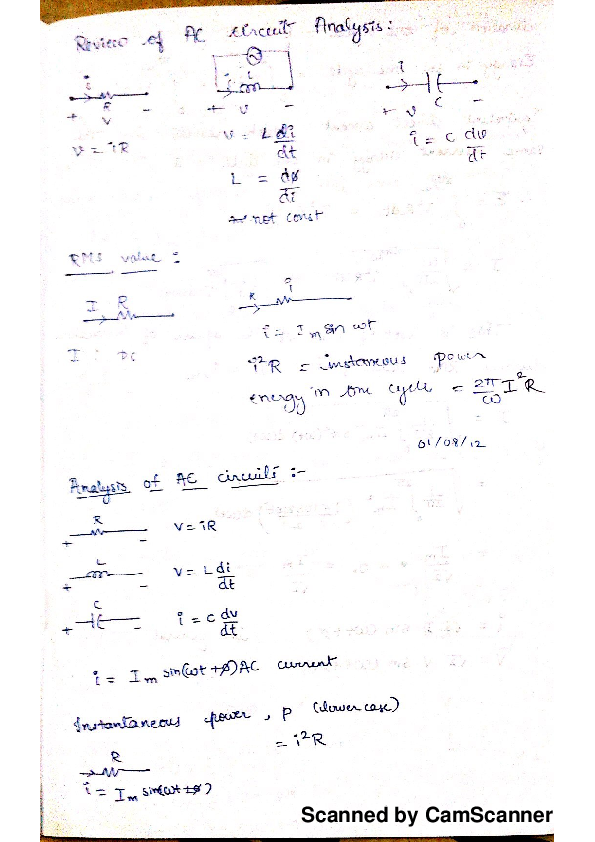 Review of AC circuit Analysis:
i i i
R L C
+ v - + v - + v -
v = iR v = L di/dt i = c dv/dt
L = dø/di
not const
RMS value :
I R R i
i = Im sin ωt
I : DC i²R = instaneous power
energy in one cycle = 2π/ω I²R
01/08/12
Analysis of AC circuits :-
R
+ - v = iR
L
+ - v = L di/dt
C
+ - i = c dv/dt
i = Im sin(ωt + ø) AC current
Instantaneous power , p (lower case)
= i²R
R
i = Im sin(ωt + ø)
Scanned by CamScanner